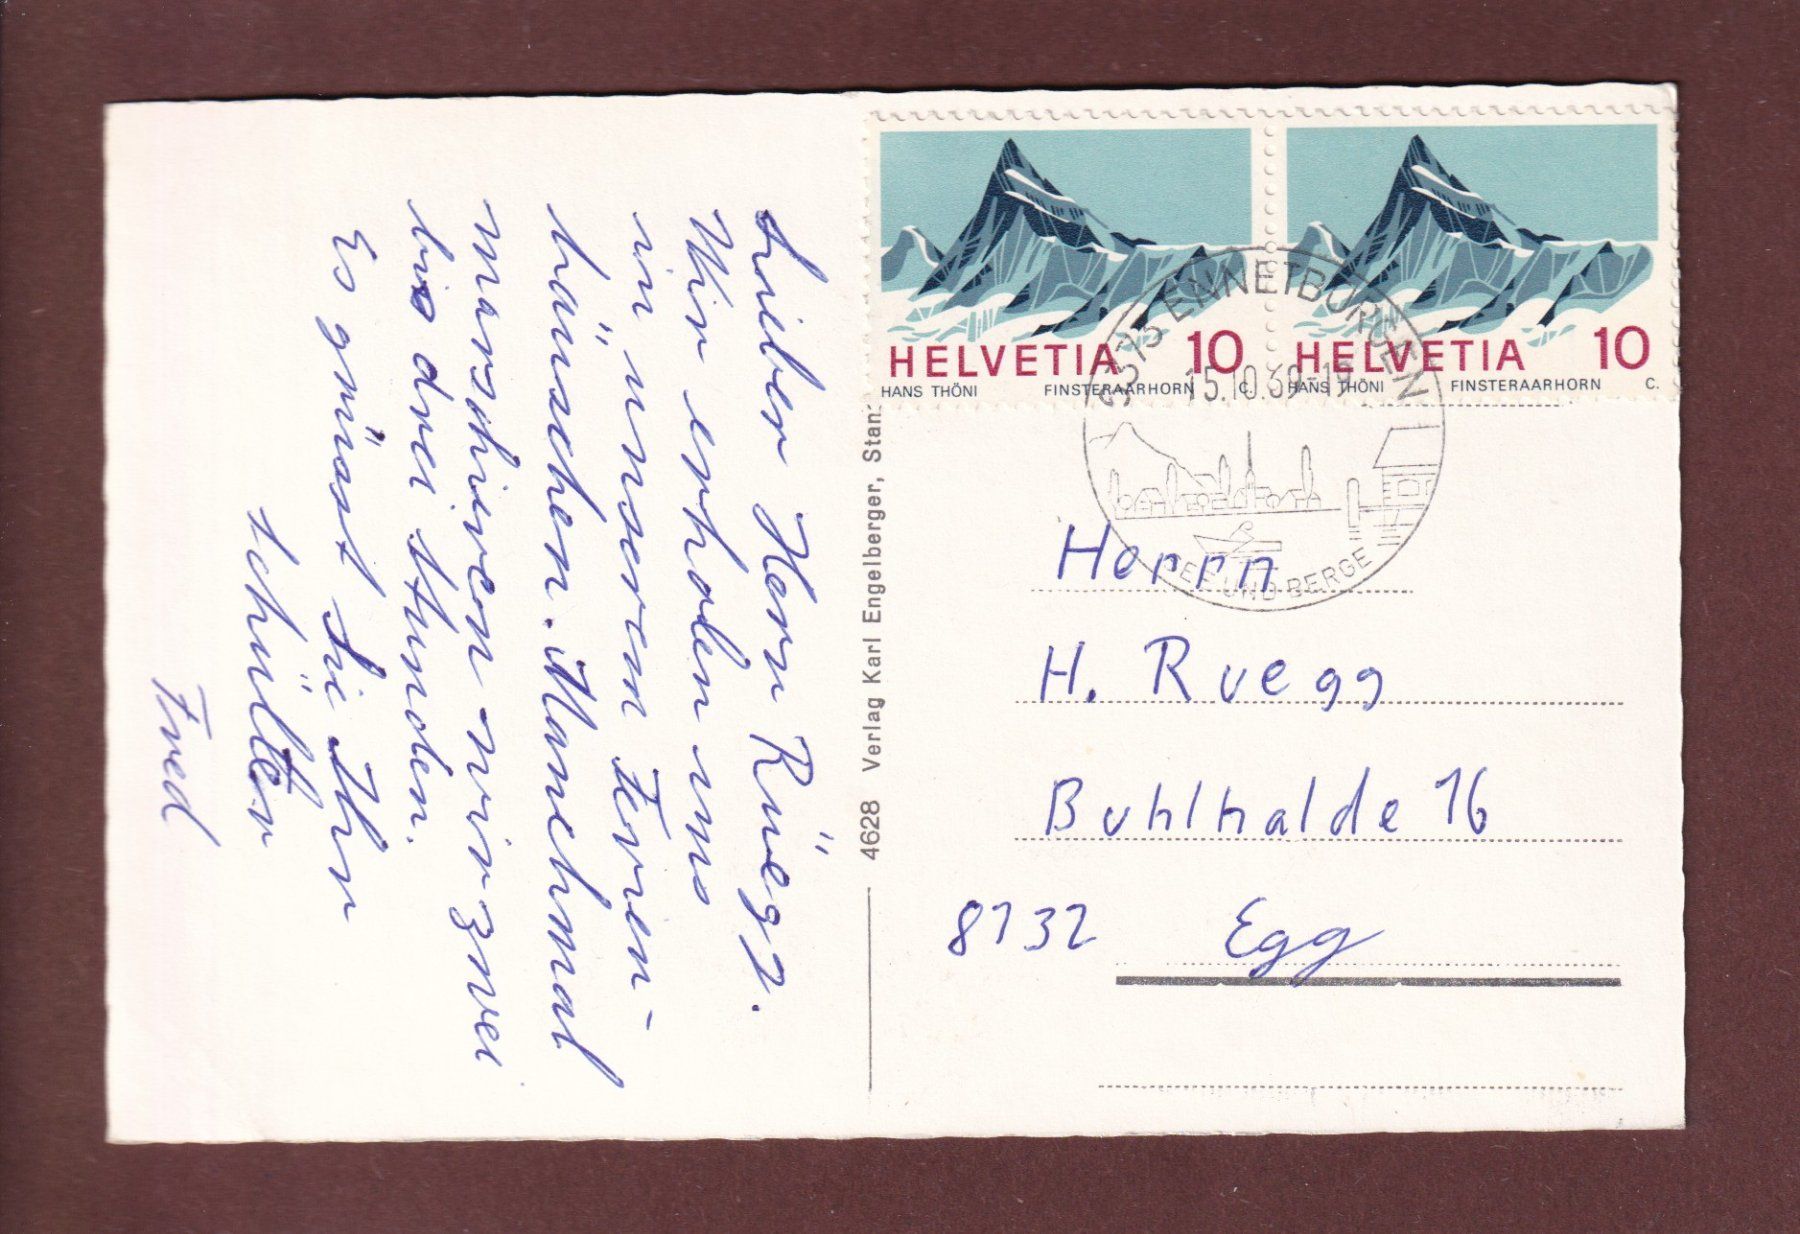 Lieber Herr Rüegg.
Wir erholen uns
in unserem Ferien-
häuschen. Manchmal
marschieren wir zwei
bis drei stunden.
Es grüsst Sie Ihr
schüller
Fred
4628 Verlag Karl Engelberger, Stan
HELVETIA 10
HANS THÖNI FINSTERAARHORN C.
HELVETIA 10
HANS THÖNI FINSTERAARHORN C.
6373 ENNETBÜRGEN
15.10.69-19
SEE UND BERGE
Herrn
H. Ruegg
Buhlhalde 16
8132 Egg